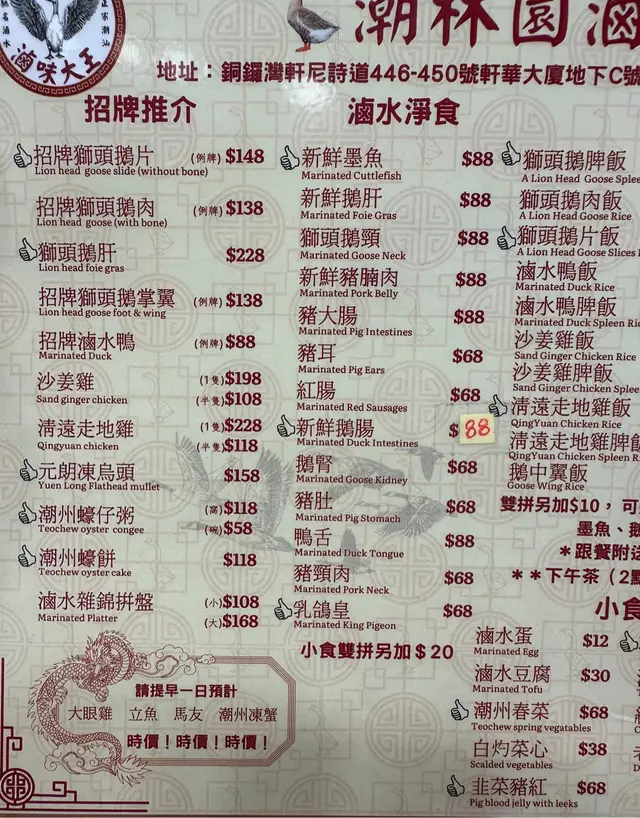 滷味大王
潮林園滷
地址：銅鑼灣軒尼詩道446-450號軒華大廈地下C號
招牌推介
招牌獅頭鵝片 (例牌) $148
Lion head goose slide (without bone)
招牌獅頭鵝肉 (例牌) $138
Lion head goose (with bone)
獅頭鵝肝 $228
Lion head foie gras
招牌獅頭鵝掌翼 (例牌) $138
Lion head goose foot & wing
招牌滷水鴨 (例牌) $88
Marinated Duck
沙姜雞 (1隻) $198
Sand ginger chicken (半隻) $108
清遠走地雞 (1隻) $228
Qingyuan chicken (半隻) $118
元朗凍烏頭 $158
Yuen Long Flathead mullet
潮州蠔仔粥 (窩) $118
Teochew oyster congee (碗) $58
潮州蠔餅 $118
Teochew oyster cake
滷水雜錦拼盤 (小) $108
Marinated Platter (大) $168
請提早一日預計
大眼雞 立魚 馬友 潮州凍蟹
時價！時價！時價！
滷水淨食
新鮮墨魚 $88
Marinated Cuttlefish
新鮮鵝肝 $88
Marinated Foie Gras
獅頭鵝頸 $88
Marinated Goose Neck
新鮮豬腩肉 $88
Marinated Pork Belly
豬大腸 $88
Marinated Pig Intestines
豬耳 $68
Marinated Pig Ears
紅腸 $68
Marinated Red Sausages
新鮮鵝腸 $88
Marinated Duck Intestines
鵝腎 $68
Marinated Goose Kidney
豬肚 $68
Marinated Pig Stomach
鴨舌 $88
Marinated Duck Tongue
豬頸肉 $68
Marinated Pork Neck
乳鴿皇 $68
Marinated King Pigeon
小食雙拼另加$20
獅頭鵝脾飯
A Lion Head Goose Splee
獅頭鵝肉飯
A Lion Head Goose Rice
獅頭鵝片飯
A Lion Head Goose Slices
滷水鴨飯
Marinated Duck Rice
滷水鴨脾飯
Marinated Duck Spleen Ri
沙姜雞飯
Sand Ginger Chicken Rice
沙姜雞脾飯
Sand Ginger Chicken Splee
清遠走地雞飯
QingYuan Chicken Rice
清遠走地雞脾飯
QingYuan Chicken Spleen R
鵝中翼飯
Goose Wing Rice
雙拼另加$10，可
墨魚、鵝
*跟餐附送
**下午茶（2點
小食
滷水蛋 $12
Marinated Egg
滷水豆腐 $30
Marinated Tofu
潮州春菜 $68
Teochew spring vegatables
白灼菜心 $38
Scalded vegetables
韭菜豬紅 $68
Pig blood jelly with leeks